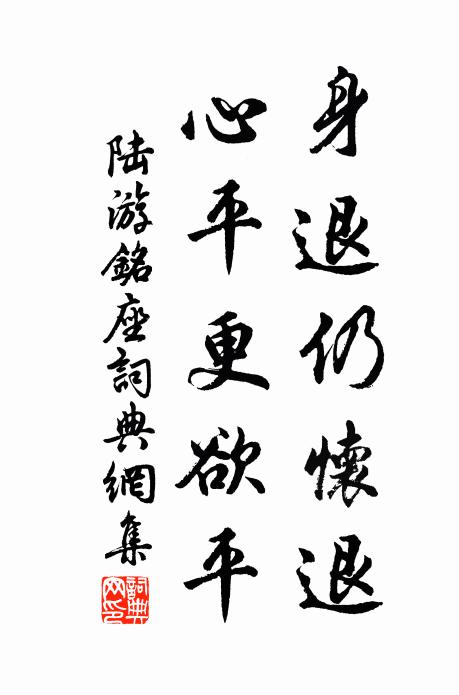 身退仍懷退
心平更欲平
陸游銘座詞典網集
詞典
网印